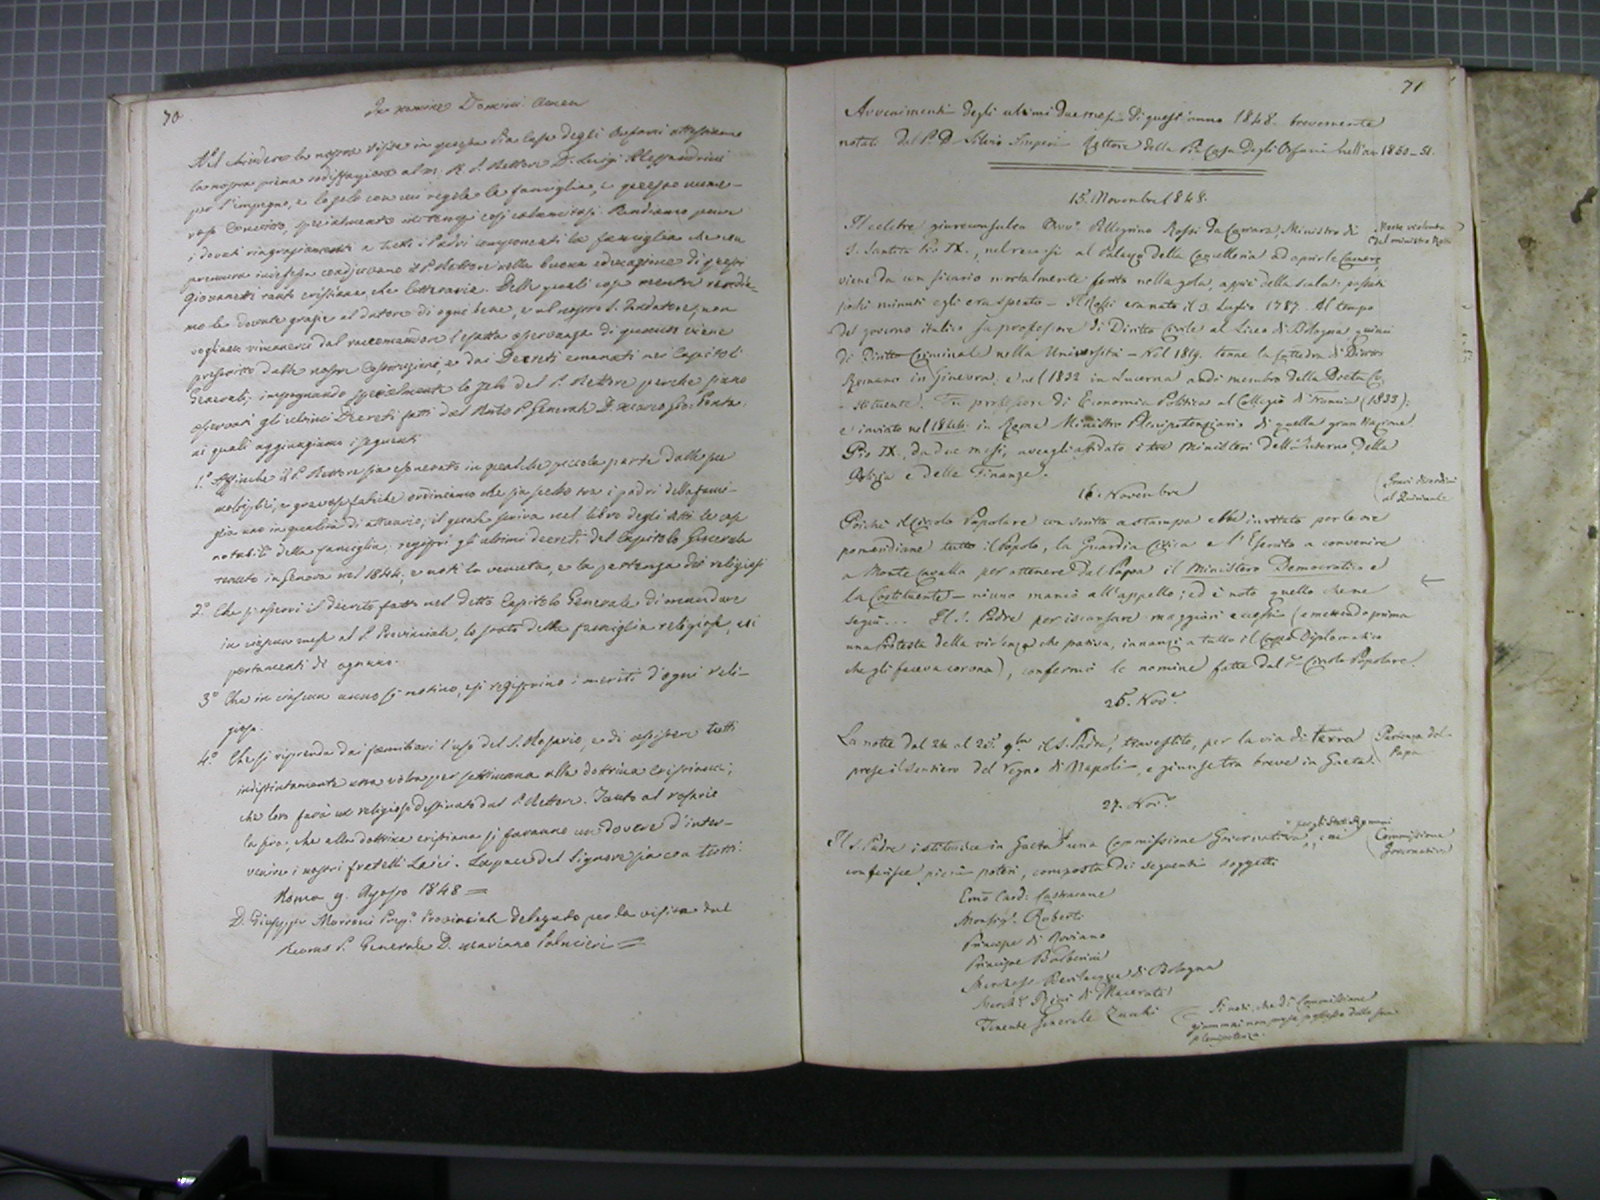 70
In nomine Domini Amen
Nel chiudere la nostra Visita in questa Pia Casa degli Orfani attestiamo
la nostra prima sodisfazione al m. R. P. Rettore D. Luigi Alessandrini
per l'impegno, e lo zelo con cui regola la famiglia, e questo nume-
roso Convitto, specialmente in tempi così calamitosi. Rendiamo pure
i dovuti ringraziamenti a tutti i Padri componenti la famiglia che con
premura indefessa coadjuvano il P. Rettore nella buona educazione di questi
giovanetti tanto cristiana, che letteraria. Delle quali cose mentre rendia-
mo le dovute grazie al datore di ogni bene, e al nostro S. Fondatore, non
vogliamo rimanerci dal raccomandare l'esatta osservanza di quanto viene
prescritto dalle nostre Costituzioni, e dai Decreti emanati nei Capitoli
Generali; impegnando specialmente lo zelo del P. Rettore perchè siano
osservati gli ultimi Decreti fatti dal Rmo P. Generale D. Marco Gio: Ponta.
ai quali aggiungiamo i seguenti
1.° Affinchè il P. Rettore sia esonerato in qualche piccola parte dalle sue
moltiplici, e gravose fatiche ordiniamo che sia scelto tra i padri della fami-
glia uno in qualità di attuario; il quale scriva nel libro degli Atti le cose
notabili della famiglia, registri gli ultimi decreti del Capitolo Generale
tenuto in Genova nel 1844, e noti la venuta, e la partenza dei religiosi
2.° Che si osservi il decreto fatto nel detto Capitolo Generale di mandare
in ciascun mese al P. Provinciale, lo stato della famiglia religiosa, e i
portamenti di ognuno.
3.° Che in ciascun anno si notino, e si registrino i meriti d'ogni reli-
gioso.
4.° Che si riprenda dai famigliari l'uso del S. Rosario, e di assistere tutti
indistintamente una volta per settimana alla dottrina cristiana,
che loro farà un religioso destinato dal P. Rettore. Tanto al rosario
la sera, che alla dottrina cristiana si faranno un dovere d'inter-
venire i nostri fratelli Laici. La pace del Signore sia con tutti
Roma 9. Agosto 1848 =
D. Giuseppe Morroni Prep.° Provinciale delegato per la visita dal
Rev.mo P. Generale D. Mariano Palmieri =
71
Avvenimenti degli ultimi due mesi di quest'anno 1848. brevemente
notati dal P. D. Silvio Imperi Rettore della Pia Casa degli Orfani nell'an. 1850-51.
15. Novembre 1848.
Il celebre giureconsulto Avv.° Pellegrino Rossi da Carrara, Ministro di
S. Santità Pio IX., nel recarsi al Palazzo della Cancelleria ad aprir le Camere,
viene da un sicario mortalmente ferito nella gola, a piè della scala: passati
pochi minuti egli era spento. - Il Rossi era nato il 3 Luglio 1787. Al tempo
del governo italico fu professore di Diritto Civile al Liceo di Bologna quindi
di Diritto Criminale nella Università - Nel 1819. tenne la cattedra di Diritto
Romano in Ginevra: e nel 1832 in Lucerna andò membro della Dieta Co-
stituente. Fu professore di Economia Politica al Collegio di Francia (1833):
e inviato nel 1844 in Roma Ministro Plenipotenziario di quella gran Nazione.
Pio IX., da due mesi, aveagli affidato i tre Ministeri dell'Interno, della
Polizia e delle Finanze.
Morte violenta
del ministro Rossi
16. Novembre
Gravi disordini
al Quirinale
Poichè il Circolo Popolare con scritto a stampa ebbe invitato per le ore
pomeridiane tutto il Popolo, la Guardia Civica e l'Esercito a convenire
a Monte Cavallo per ottenere dal Papa il Ministero Democratico e
la Costituente - niuno mancò all'appello; ed è noto quello che ne
seguì... Il S. Padre per iscansare maggiori eccessi (emettendo prima
una Protesta della violenza che pativa, innanzi a tutto il Corpo Diplomatico
che gli faceva corona), confermò le nomine fatte dal Circolo Popolare.
25. Nov.e
La notte dal 24 al 25. 9bre il S. Padre, travestito, per la via di terra
prese il sentiero del Regno di Napoli, e giunse tra breve in Gaeta.
Partenza del
Papa
27. Nov.e
per gli Stati Romani
Il S. Padre istituisce in Gaeta una Commissione Governativa, cui
conferisce pieni poteri, composta dei seguenti soggetti
Commissione
Governativa
Emo Card. Castracane
Monsig.r Roberti
Principe di Roviano
Principe Barberini
Marchese Bevilacqua di Bologna
March.e Ricci di Macerata
Tenente Generale Zucchi
Si noti, che di Commissione
giammai non prese possesso della sua
plenipotenza.